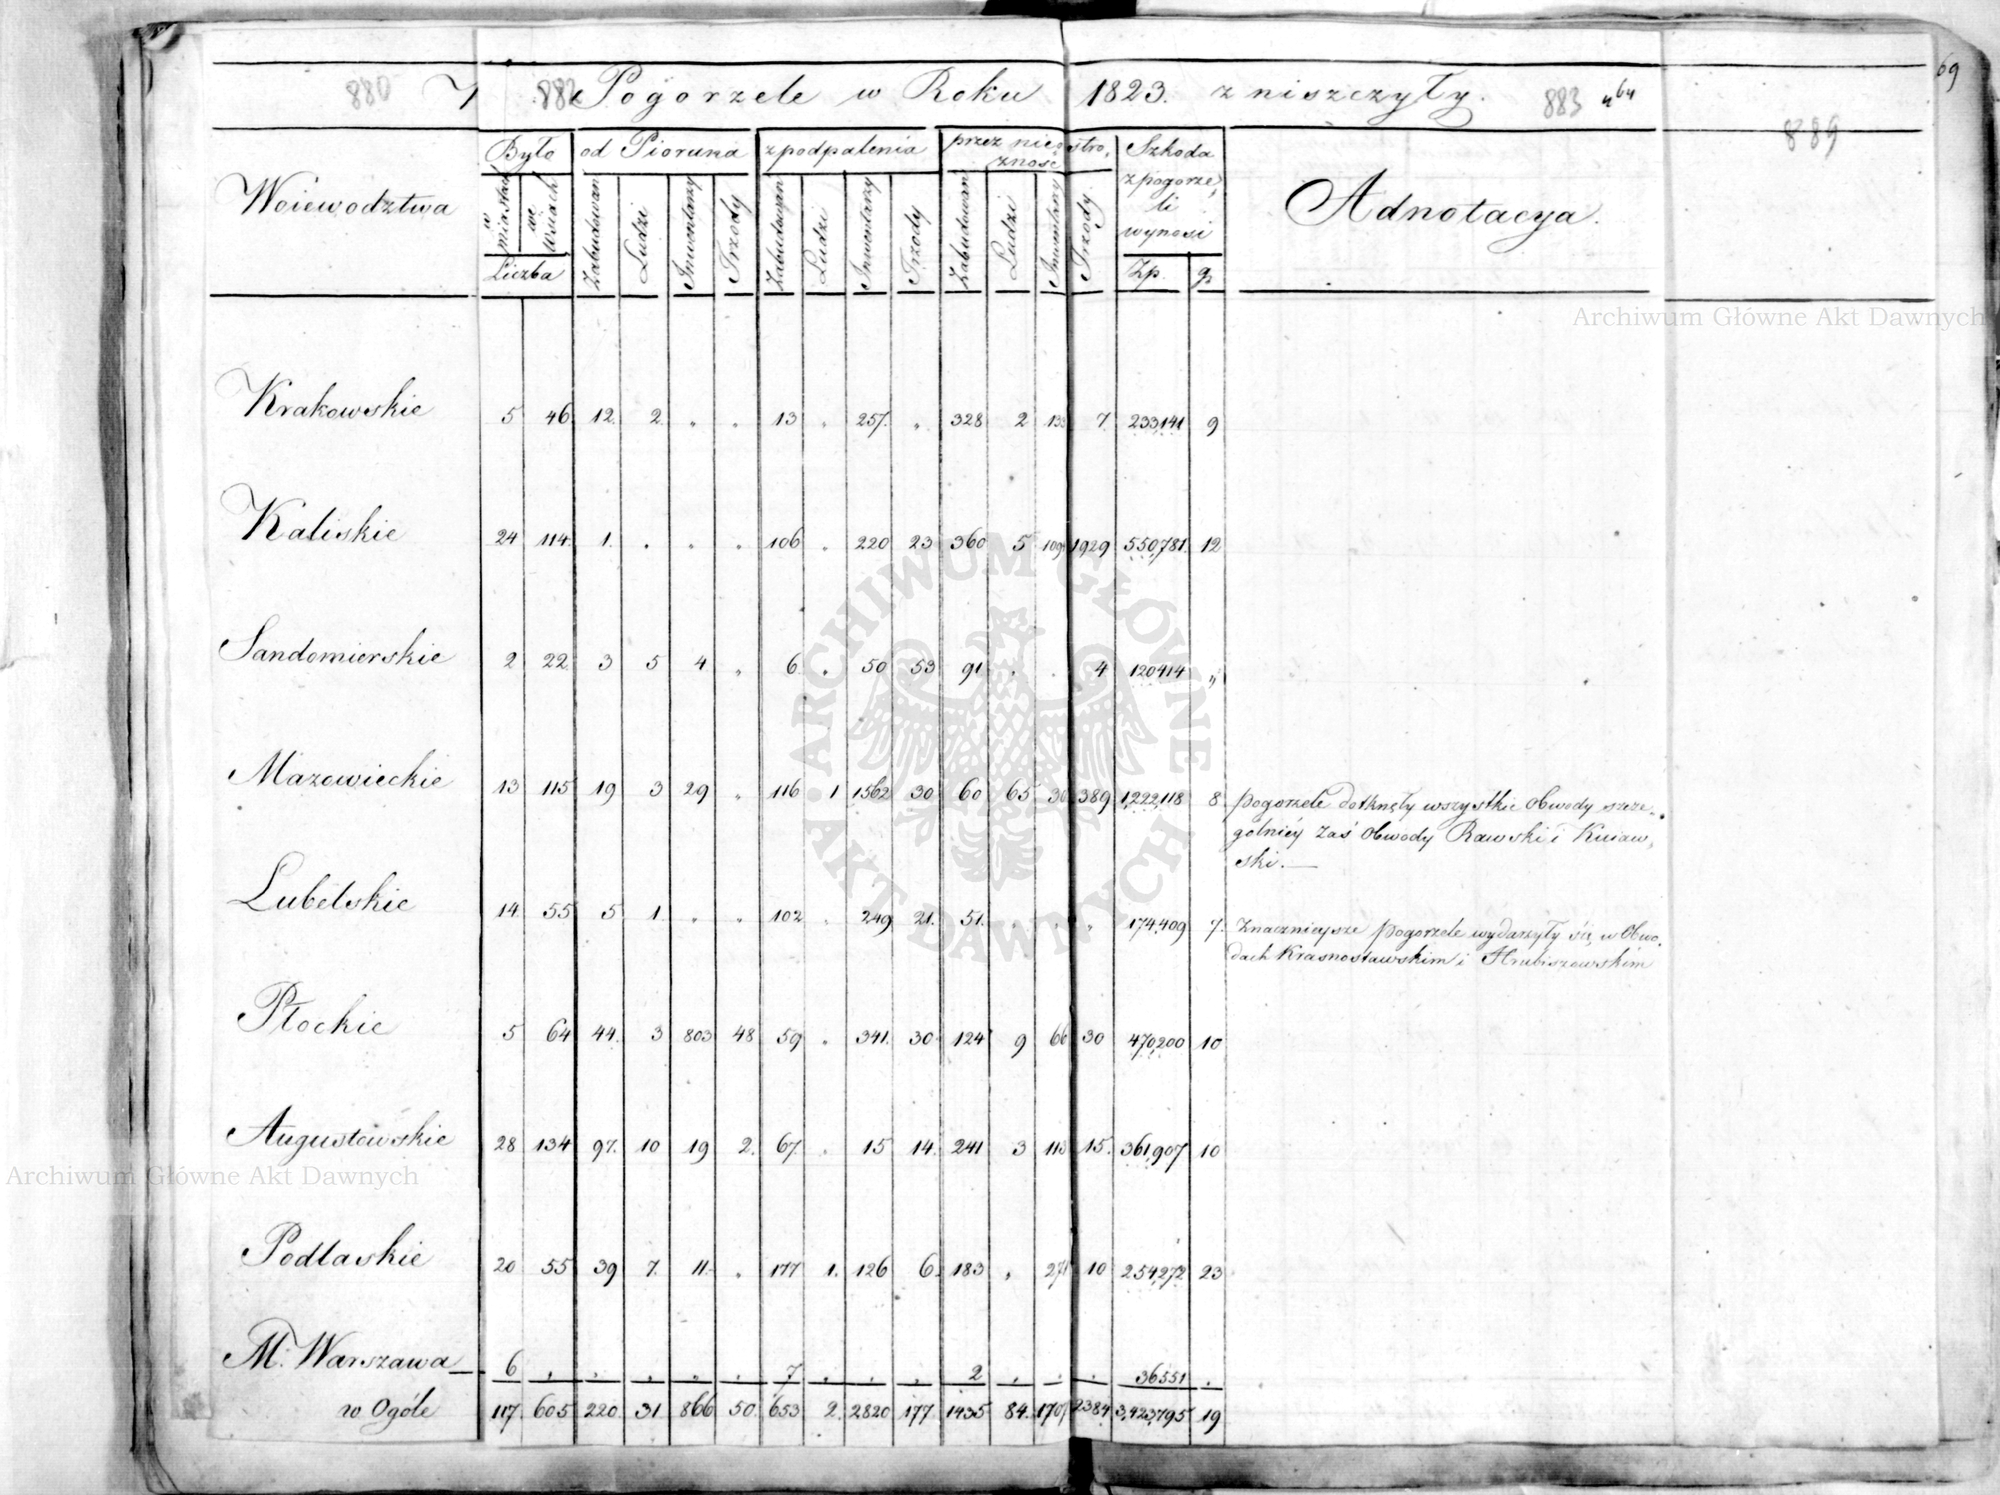 69
880 882 Pogorzele w Roku 1823. zniszczyły. 883 889
Woiewodztwa
Było
od Pioruna
z podpalenia
przez nieostro,
żnosć
Szkoda
z pogorze,
li
wynosi
Adnotacya.
w Miastach
we Wsiach
Zabudowan
Ludzi
Inwentarzy
Trzody
Zabudowan
Ludzi
Inwentarzy
Trzody
Zabudowan
Ludzi
Inwentarzy
Trzody
Liczba
Zp. gr
Krakowskie 5 46 12. 2. " " 13 " 257. " 328 2 133 7. 233,141 9
Kaliskie 24 114. 1. " " " 106 " 220 23 360 5 109 1929 550,781. 12
Sandomierskie 2 22 3 5 4 " 6. " 50 53 91 " " 4 120414 "
Mazowieckie 13 115 19 3 29 " 116 1 1562 30 60 65 389 1,222,118 8 pogorzele dotknęły wszystkie obwody szcze-
golniéy zaś obwody Rawski i Kuiaw,
ski.—
Lubelskie 14. 55 5 1. " " 102 " 249 21. 51. " " " 174,409 7. Znacznieysze pogorzele wydarzyły się w Obwo,
dach Krasnostawskim i Hrubiszowskim
Płockie 5 64 44. 3 803 48 59 " 341. 30 124 9 66 30 470,200 10
Augustowskie 28 134 97. 10 19 2. 67. " 15 14. 241 3 113 15. 361,907 10
Podlaskie 20 55 39 7. 11. " 177 1. 126 6. 183 " 271 10 254,272 23
M. Warszawa 6 " " " " " 7 " " " 2 " " " 36551 "
w Ogóle 117. 605 220 31. 866 50. 653 2. 2820 177. 1435 84. 1707 2384 3,423,795 19
Archiwum Główne Akt Dawnych
Archiwum Główne Akt Dawnych
· ARCHIWUM GŁÓWNE · AKT DAWNYCH